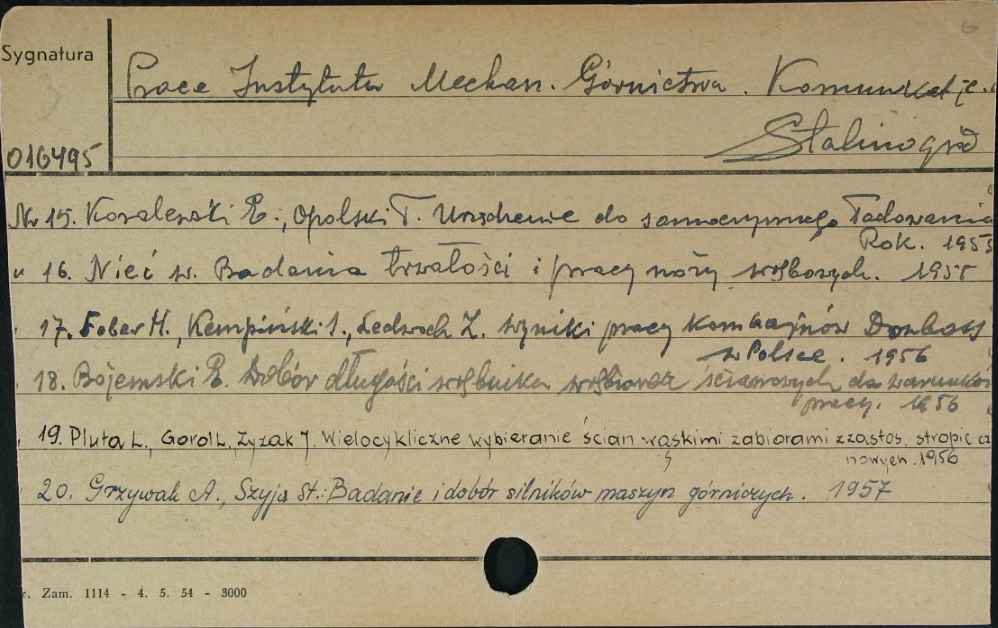 Sygnatura
Prace Instytutu Mechan. Górnictwa. Komunikat
Stalinogród
016495
Nr 15. Kowalewski E., Opolski T. Urządzenie do samoczynnego ładowania
Rok. 1955
" 16. Nieć w. Badania trwałości i pracy noży wrębowych. 1955
17. Faber H., Kempiński J., Ledwoch Z. Wyniki pracy kombajnów Donbass
w Polsce. 1956
18. Bojemski E. Dobór długości wrębnika ścianowych do warunków
pracy. 1956
19. Pluta L., Gorol L., Zyzak J. Wielocykliczne wybieranie ścian wąskimi zabiorami z zastos. stropnic cz
nowych. 1956
20. Grzywak A., Szyja St.: Badanie i dobór silników maszyn górniczych. 1957
Zam. 1114 - 4. 5. 54 - 3000